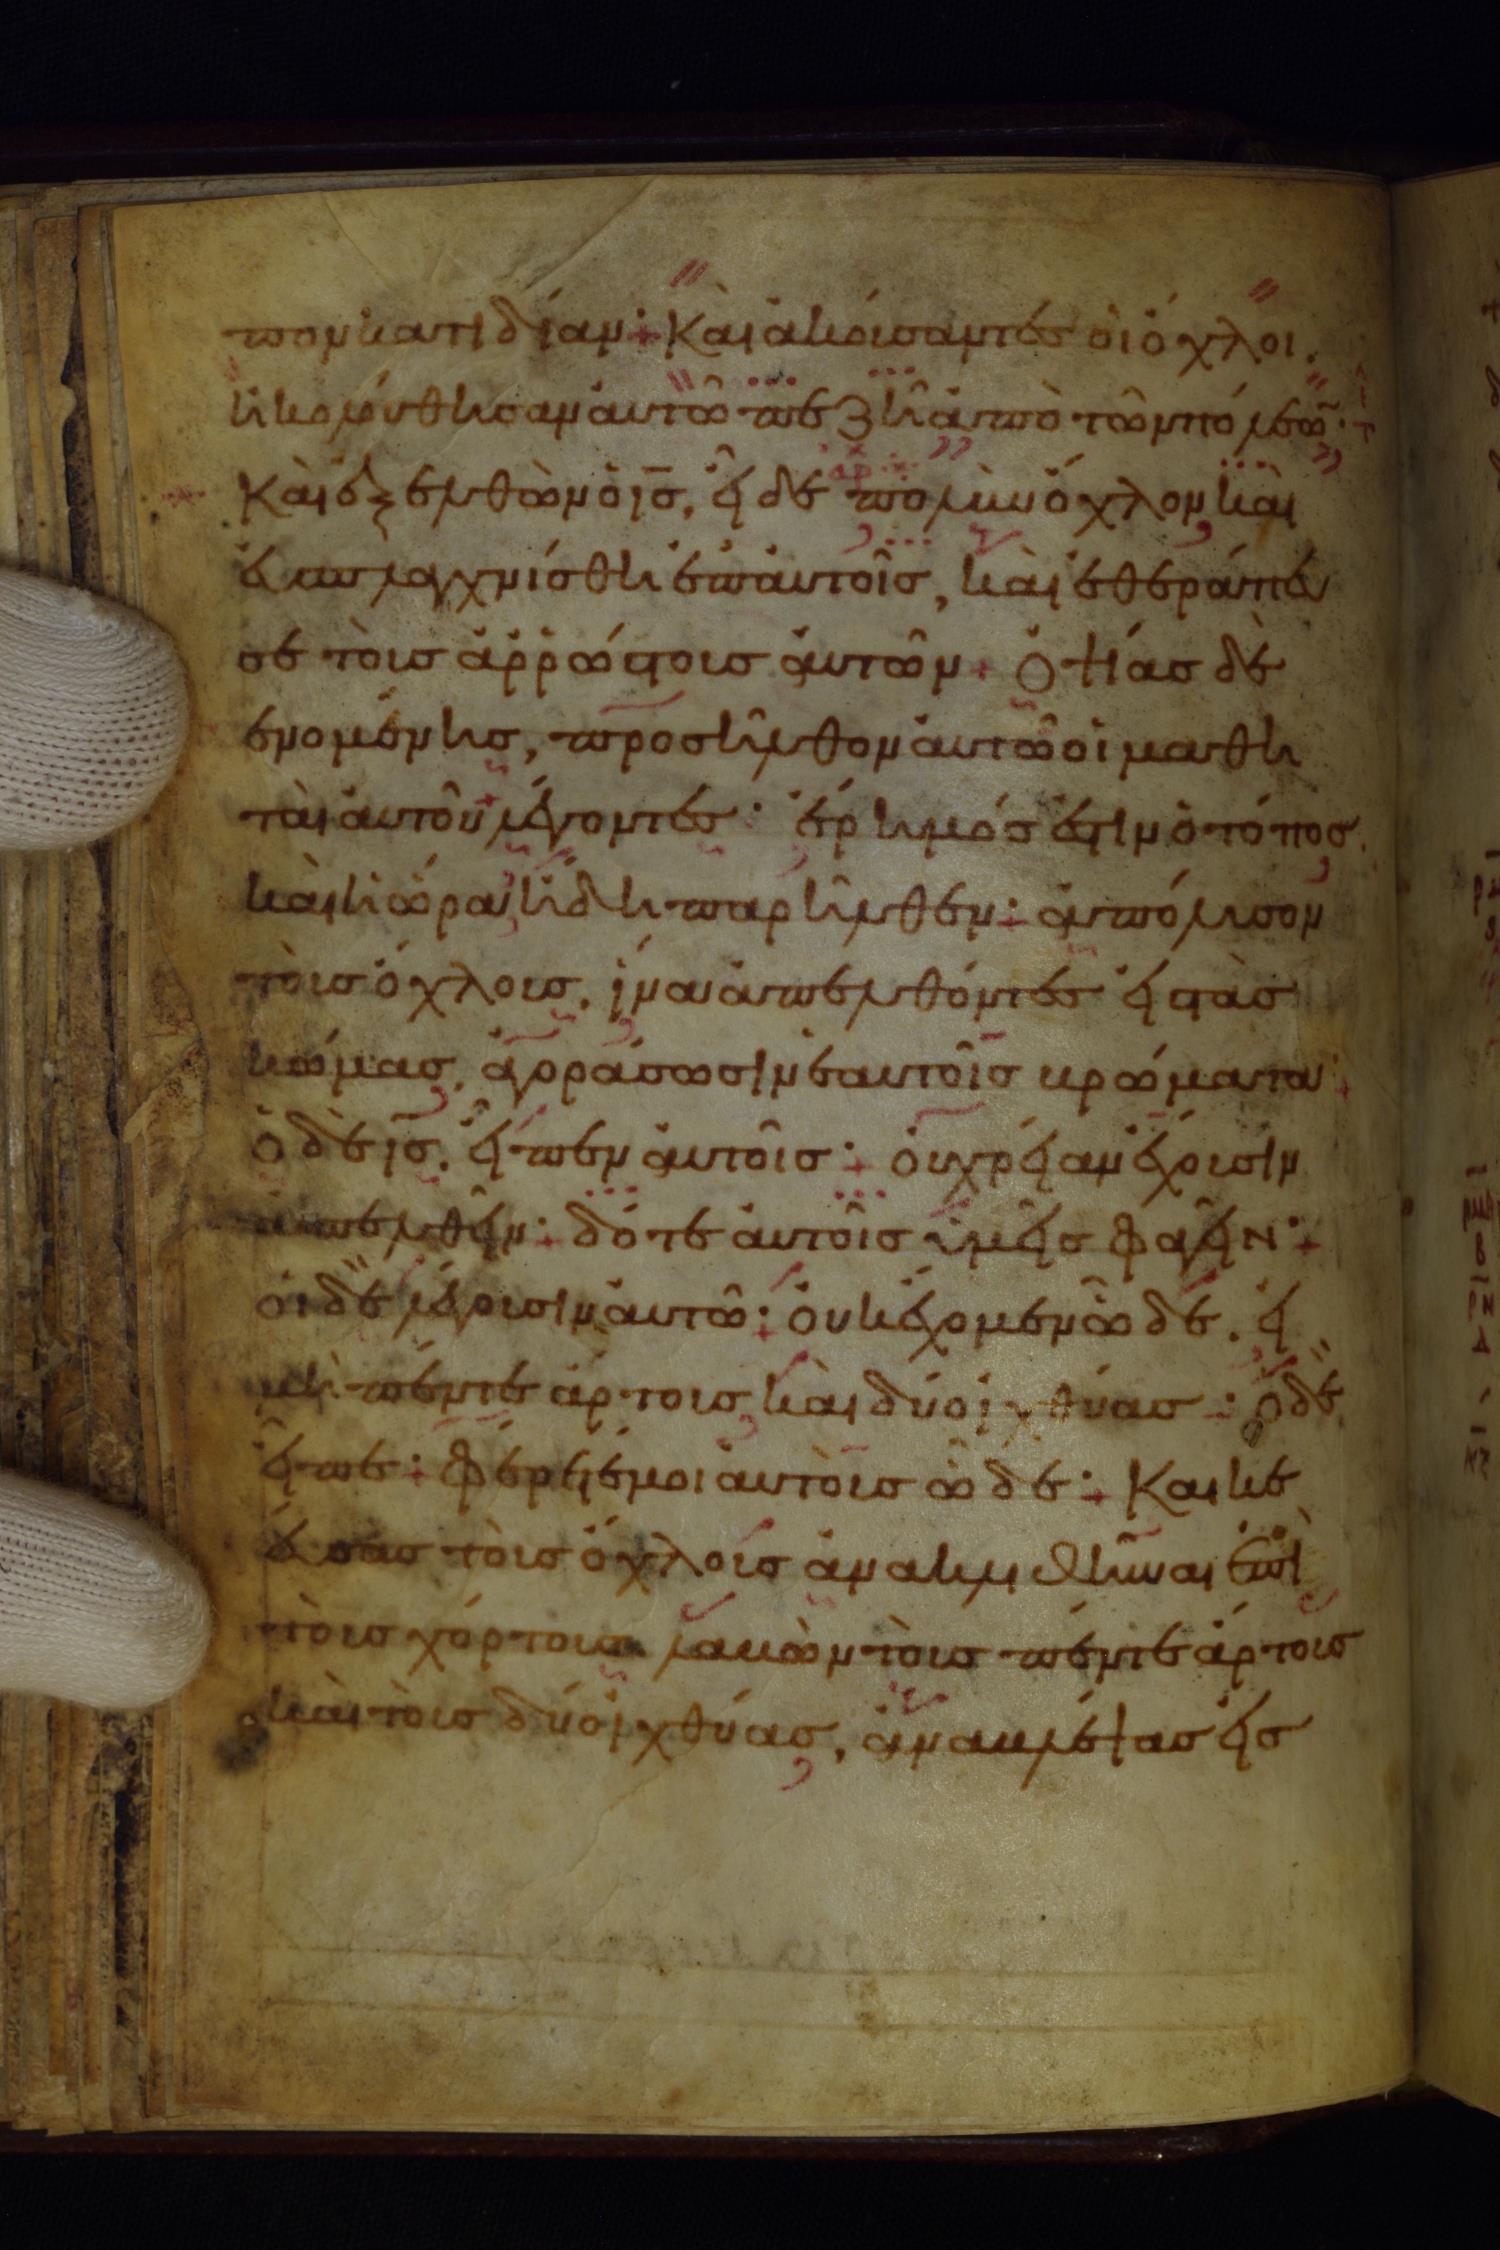 πον κατ ιδίαν· Καὶ ἀκούσαντες οἱ ὄχλοι.
ἠκολούθησαν ἀυτῶ πεζῆ ἀπὸ τῶν πόλεω̃·
Καὶ ἐξελθὼν ὁ ις̅, εἶδε πολὺν ὄχλον καὶ
ἐσπλαγχνίσθη ἐπ ἀυτοῖσ, καὶ ἐθεράπευ
σε τοὺσ ἀῤῥώστουσ ἀυτῶν Ὀψίασ δὲ
γενομένησ, προσῆλθον ἀυτῶ οἱ μαθη
ταὶ ἀυτοῦ λέγοντες· ἔρημόσ ἐστιν ὁ τόποσ.
καὶ ἡ ὥρα ἤδη παρῆλθεν· ἀπόλυσον
τοὺσ ὄχλουσ, ἵνα ἀπελθόντεσ εἰσ τὰσ
κώμασ, ἀγοράσωσιν ἑαυτοῖσ βρώματα
ὁ δὲ ις̅. εἶπεν ἀυτοῖσ· ὀυ χρείαν ἔχουσιν
ἀπελθεῖν· δότε ἀυτοῖσ ὑμεῖσ φαγεῖν·
ὁι δὲ λέγουσιν ἀυτῶ· ὀυκ ἔχομεν ὧδε. εἰ
μὴ πέντε ἄρτουσ καὶ δύο ἰχθύασ· ὁ δὲ
εἶπε· φέρετέ μοι αυτοὺσ ὧδε· Και κε
λεύσασ τοὺσ ὄχλουσ ἀνακλιθῆναι ἐπὶ
τοὺσ χόρτουσ λαβὼν τοὺσ πέντε ἄρτουσ
καὶ τοὺσ δύο ἰχθύασ, ἀναβλέψασ εἰσ